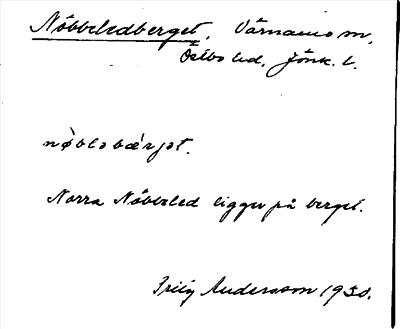 Nöbbeledberget, Värnamo sn,
Östbo hd, Jönk. l.
nø̀bləbæŕjət.
Norra Nöbbeled ligger på berget.
Andersson 1930.